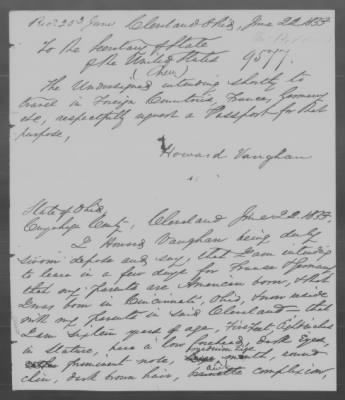 Recd 23d June Cleveland Ohio, June 22 1857
To the Secretary of State
of the United States 9577.
The Undersigned intending shortly to
travel in Foreign Countries, France, Germany
&c, respectfully request a Passport for that
purpose,
Howard Vaughan
State of Ohio
Cuyahoga County, Cleveland June 22
I Howard Vaughan being duly
sworn depose and say, that I am intending
to leave in a few days for France & Germany
that my parents are American born, & that
I was born in Cincinnati, Ohio, & now reside
with my parents in said Cleveland— that
I am Sixteen years of age, five feet inches
in stature, have a low forehead, dark Eyes,
prominent nose, mouth, round
chin, dark brown hair, complexion,